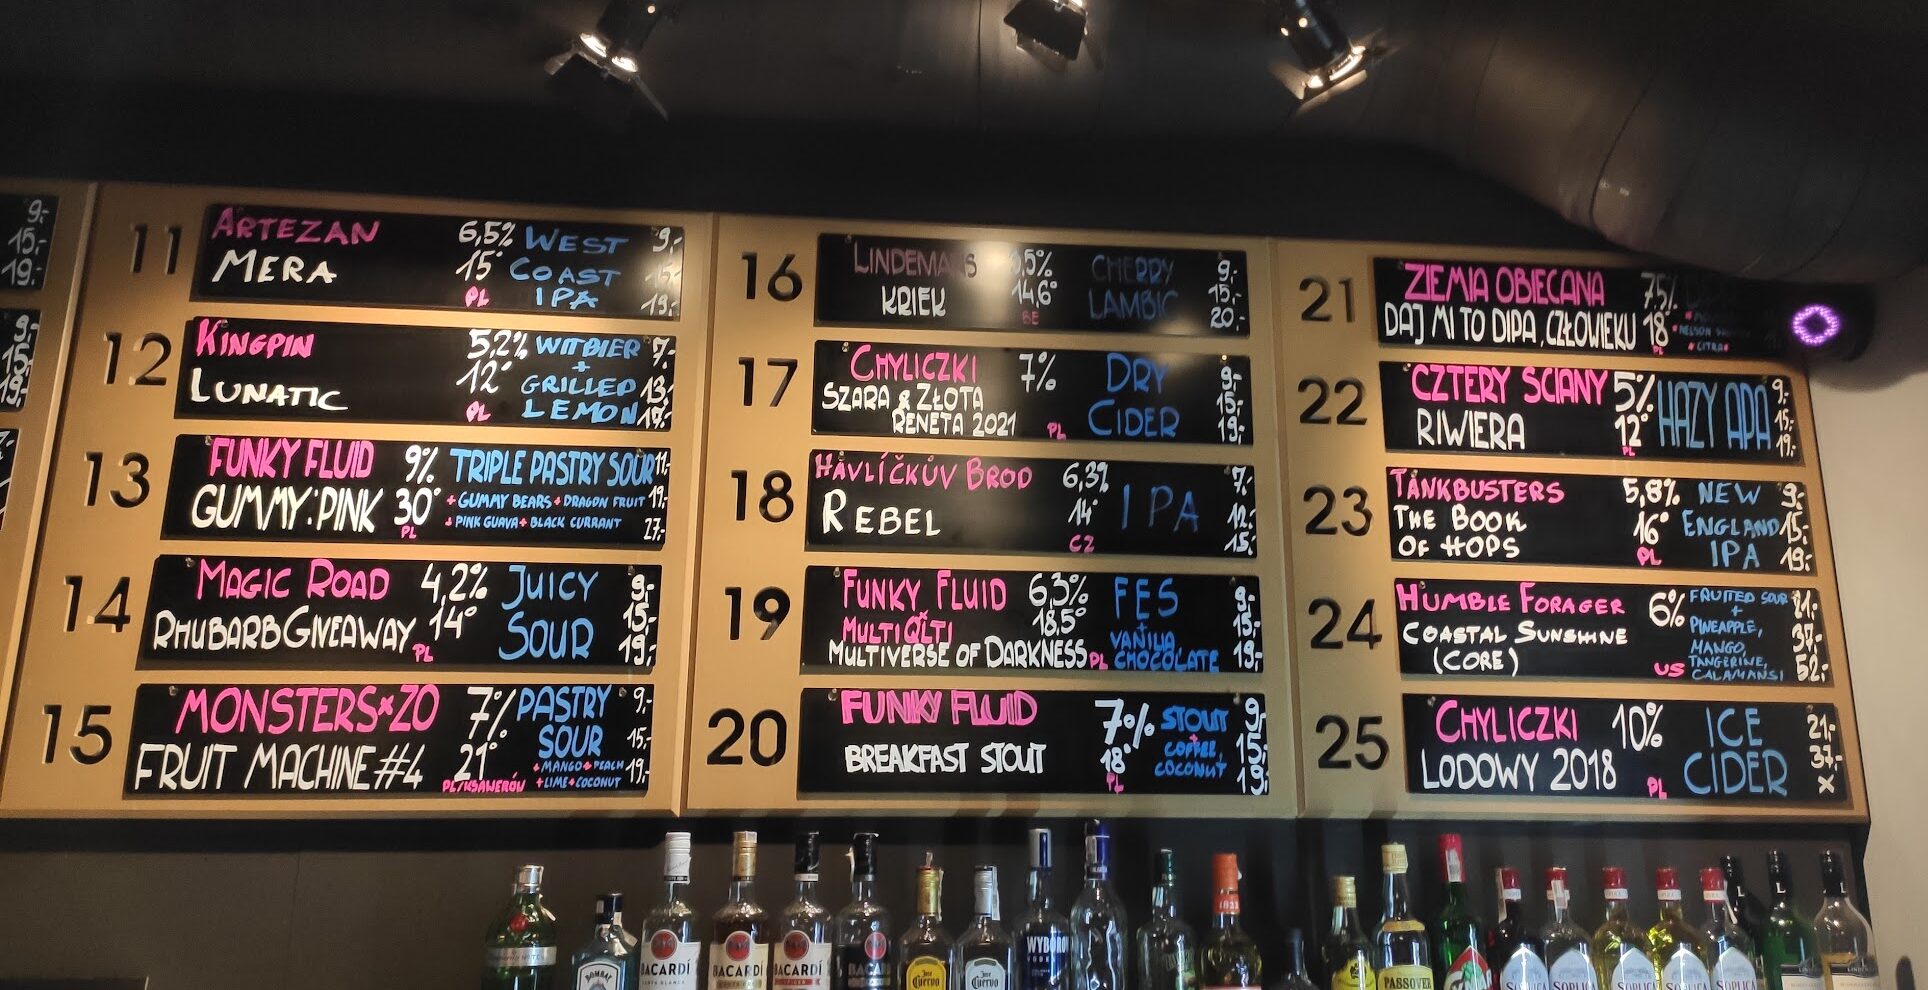 9,-
15,-
19,-
9,-
15,-
19,-
11
ARTEZAN 6,5% WEST 9,-
MERA 15° COAST 15,-
PL IPA 19,-
12
KINGPIN 5,2% WITBIER 7,-
+
LUNATIC 12° GRILLED 13,-
PL LEMON 17,-
13
FUNKY FLUID 9% TRIPLE PASTRY SOUR 11,-
GUMMY:PINK 30° + GUMMY BEARS + DRAGON FRUIT 19,-
PL + PINK GUAVA + BLACK CURRANT 27,-
14
MAGIC ROAD 4,2% JUICY 9,-
RHUBARB GIVEAWAY 14° SOUR 15,-
PL 19,-
15
MONSTERS×ZO 7% PASTRY 9,-
SOUR 15,-
FRUIT MACHINE #4 21° + MANGO + PEACH 19,-
PL/KSAWERÓW + LIME + COCONUT
16
LINDEMANS ,5% CHERRY 9,-
KRIEK 14,6° LAMBIC 15,-
BE 20,-
17
CHYLICZKI 7% DRY 9,-
SZARA & ZŁOTA CIDER 15,-
RENETA 2021 PL 19,-
18
HAVLÍČKŮV BROD 6,3% IPA 7,-
REBEL 14° 12,-
CZ 15,-
19
FUNKY FLUID 6,3% FES 9,-
× +
MULTI QLTI 18,5° VANILIA 15,-
MULTIVERSE OF DARKNESS PL CHOCOLATE 19,-
20
FUNKY FLUID 7% STOUT 9,-
+
BREAKFAST STOUT 18° COFFEE, 15,-
PL COCONUT 19,-
21
ZIEMIA OBIECANA 7,5%
DAJ MI TO DIPA, CZŁOWIEKU 18° NELSON
PL * CITRA *
22
CZTERY ŚCIANY 5% HAZY APA 9,-
RIWIERA 12° 15,-
PL 19,-
23
TANKBUSTERS 5,8% NEW 9,-
THE BOOK 16° ENGLAND 15,-
OF HOPS PL IPA 19,-
24
HUMBLE FORAGER 6% FRUITED SOUR 21,-
+
COASTAL SUNSHINE PINEAPPLE, 37,-
(CORE) MANGO,
US TANGERINE, 52,-
CALAMANSI
25
CHYLICZKI 10% ICE 21,-
LODOWY 2018 CIDER 37,-
PL X
BOMBAY
BACARDÍ
BACARDÍ
BACARDÍ
Jose
Cuervo
Jose
Cuervo
WYBOROWA
1822
PASSOVER
SOPLICA
SOPLICA
SOPLICA
SOPLICA
SOPLICA